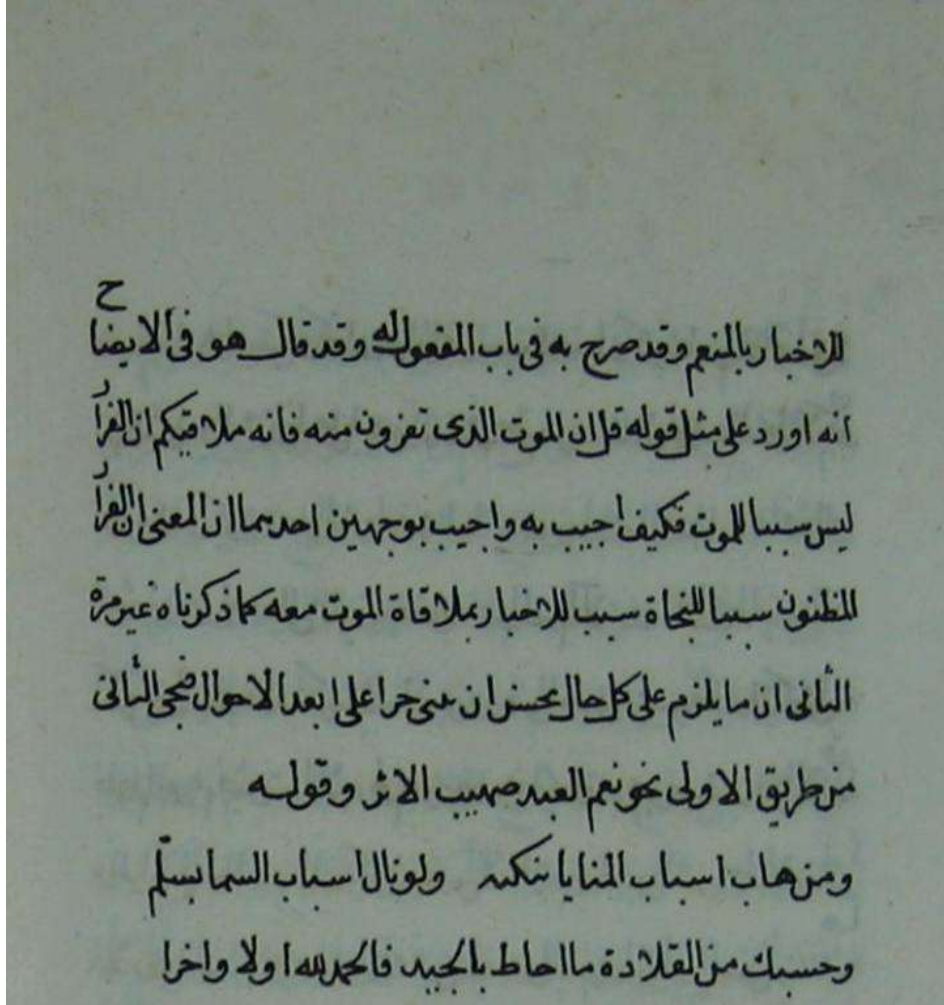 للاخبار بالمنعم وقد صرح به فى باب المفعول له وقد قال هو فى الايضاح
انه اورد على مثل قوله قل ان الموت الذى تفرون منه فانه ملاقيكم ان الفرار
ليس سببا للموت فكيف اجيب به واجيب بوجهين احدهما ان المعنى ان الفرار
المظنون سببا للنجاة سبب للاخبار بملاقاة الموت معه كما ذكرناه غير مرة
الثانى ان ما يلزم على كل حال يحسن ان على ابعد الاحوال الثانى
من طريق الاولى نحو نعم العبد صهيب الاثر وقوله
ومن هاب اسباب المنايا ولو نال اسباب السما بسلّم
وحسبك من القلادة ما احاط بالجيد فالحمد لله اولا واخرا